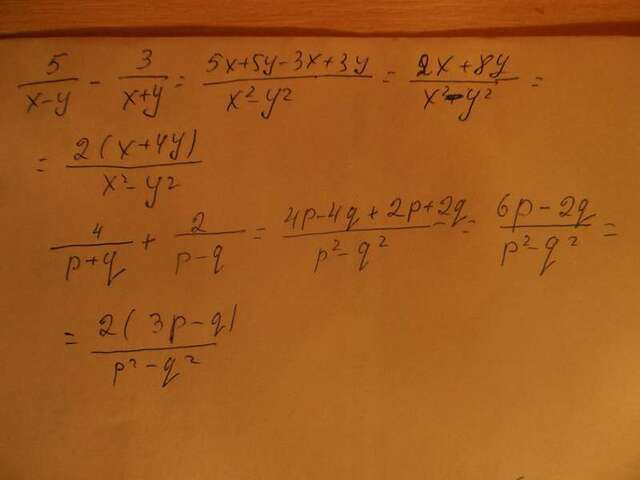 5/(x-y) - 3/(x+y) = (5x+5y-3x+3y)/(x²-y²) = (2x+8y)/(x²-y²) =
= 2(x+4y)/(x²-y²)
4/(p+q) + 2/(p-q) = (4p-4q+2p+2q)/(p²-q²) = (6p-2q)/(p²-q²) =
= 2(3p-q)/(p²-q²)